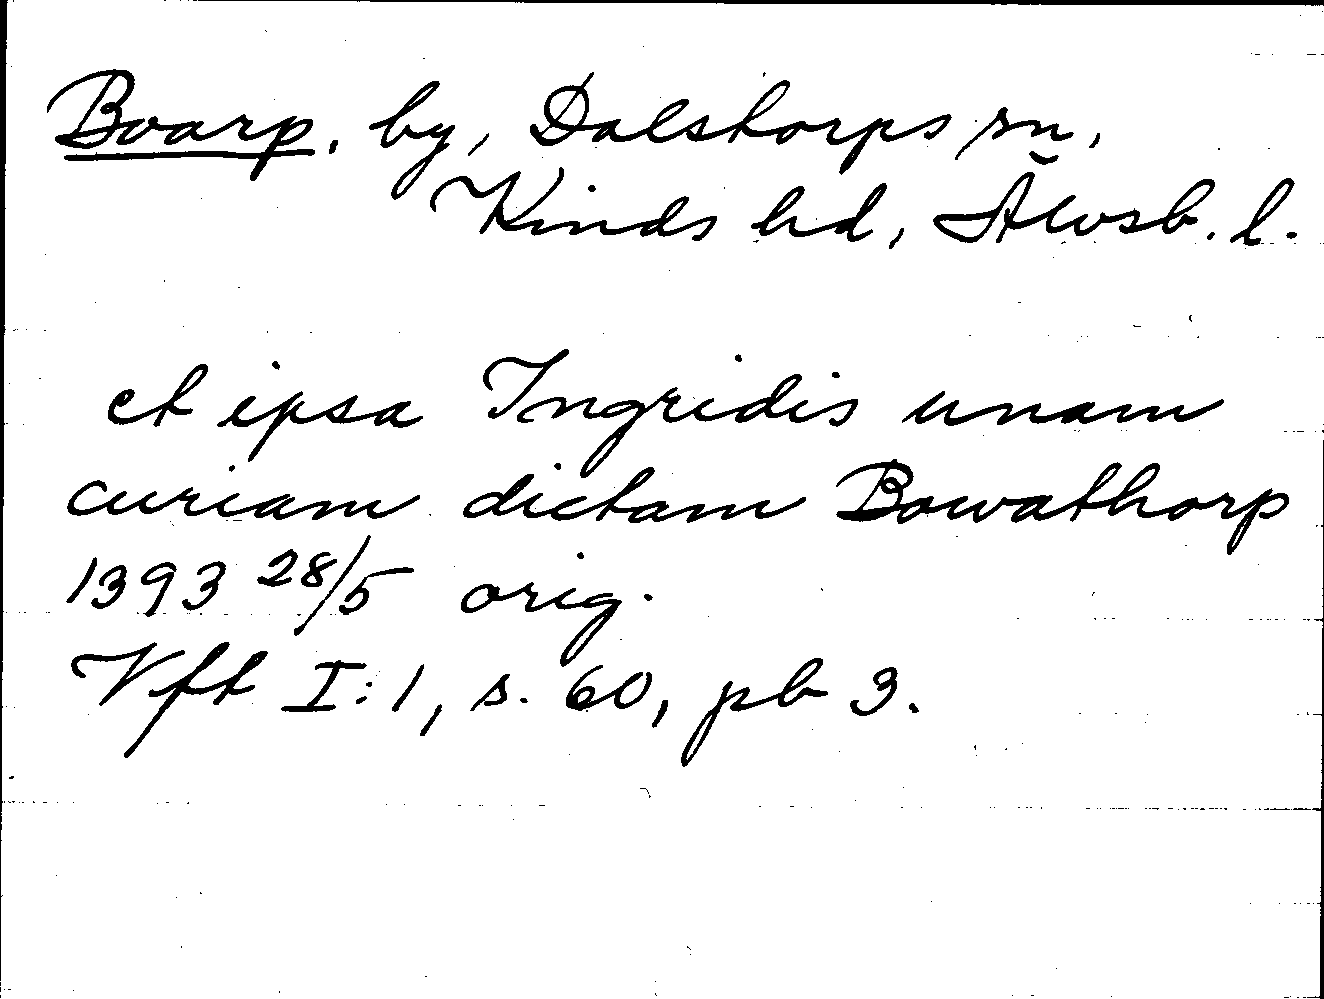 Boarp, by, Dalstorps sn,
Kinds hd, Älvsb. l.
et ipsa Ingridis unam
curiam dictam Bowathorp
1393 28/5 orig.
Vft I:1, s. 60, pb 3.